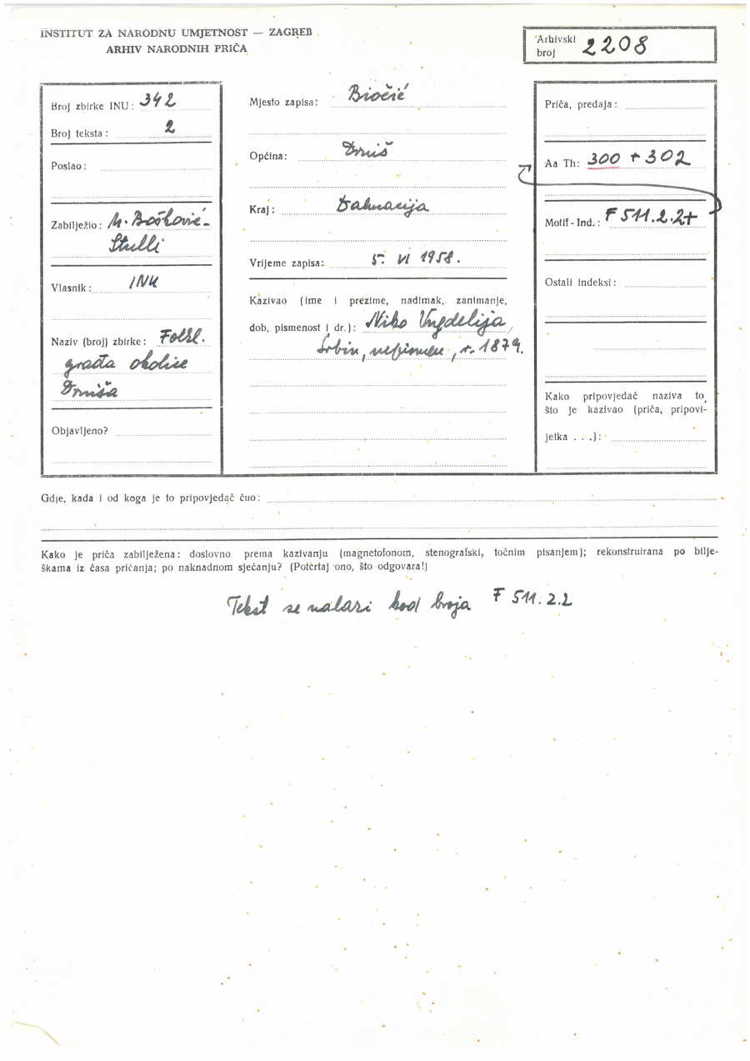 INSTITUT ZA NARODNU UMJETNOST — ZAGREB
ARHIV NARODNIH PRIČA
Arhivski broj 2208
Broj zbirke INU: 342
Broj teksta: 2
Poslao:
Zabilježio: M. Bošković-
Stulli
Vlasnik: INU
Naziv (broj) zbirke: Folkl.
građa okolice
Drniša
Objavljeno?
Mjesto zapisa: Biočić
Općina: Drniš
Kraj: Dalmacija
Vrijeme zapisa: 5. VI 1958.
Kazivao (ime i prezime, nadimak, zanimanje,
dob, pismenost i dr.): Niko Ungdelija,
Srbin, nepismen, r. 1879.
Priča, predaja:
Aa Th: 300 + 302
Motif-Ind.: F 511.2.2+
Ostali indeksi:
Kako pripovjedač naziva to
što je kazivao (priča, pripovi-
jetka . . .):
Gdje, kada i od koga je to pripovjedač čuo:
Kako je priča zabilježena: doslovno prema kazivanju (magnetofonom, stenografski, točnim pisanjem); rekonstruirana po bilje-
škama iz časa pričanja; po naknadnom sjećanju? (Potcrtaj ono, što odgovara!)
Tekst se nalazi kod broja F 511.2.2